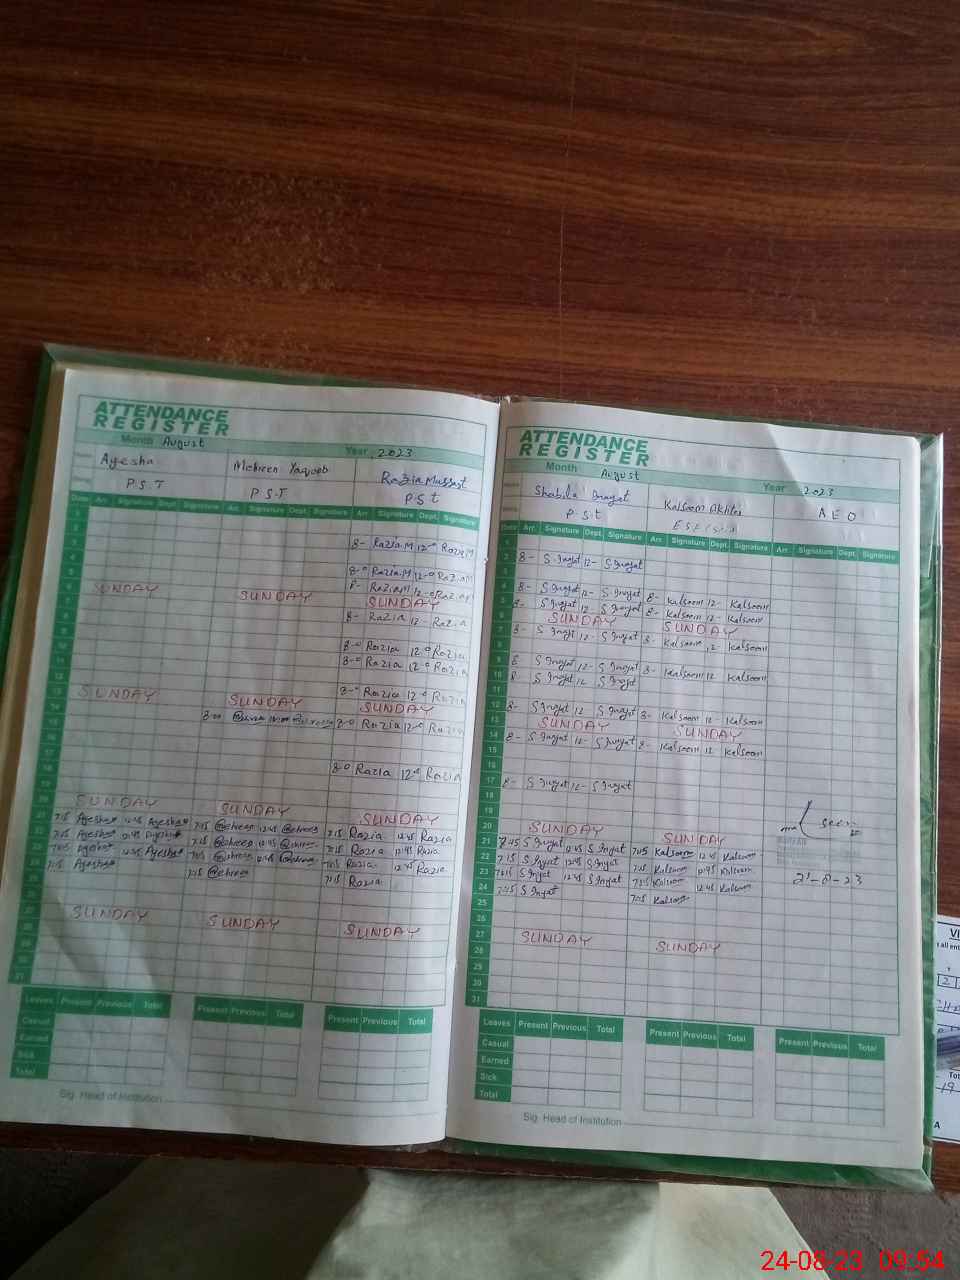 ATTENDANCE
REGISTER
Month August Year 2023
Ayesha Mehreen Yaqoob Razia Mussrat
P.S.T P.S.T P.S.t
Date Arr. Signature Dept. Signature Arr. Signature Dept. Signature Arr. Signature Dept. Signature
8- Razia.M 12-0 Razia M
8-0 Razia.M 12-0 Razia M
8- Razia M 12-0 Razia.M
SUNDAY SUNDAY SUNDAY
8- Razia 12- Razia
8-0 Razia 12-0 Razia
8-0 Razia 12-0 Razia
8-0 Razia 12-0 Razia
SUNDAY SUNDAY SUNDAY
8-0 8-0 Razia 12-0 Razia
8-0 Razia 12-0 Razia
SUNDAY SUNDAY SUNDAY
7:15 Ayesha 12:45 Ayesha 7:15 12:45 7:15 Razia 12:45 Razia
7:15 Ayesha 12:45 Ayesha 7:15 12:45 7:15 Razia 12:45 Razia
7:15 Ayesha 12:45 Ayesha 7:15 12:45 7:15 Razia 12:45 Razia
7:15 Ayesha 7:15 7:15 Razia
SUNDAY SUNDAY SUNDAY
Leaves Present Previous Total Present Previous Total Present Previous Total
Casual
Earned
Sick
Total
Sig. Head of Institution
ATTENDANCE
REGISTER
Month August Year 2023
Shabila Inayat Kalsoom Akhter A E O
P.S.t
Date Arr. Signature Dept. Signature Arr. Signature Dept. Signature Arr. Signature Dept. Signature
1
2 8- S Inayat 12- S Inayat
3
4 8- S Inayat 12- S Inayat 8- Kalsoom 12- Kalsoom
5 8- S Inayat 12- S Inayat 8- Kalsoom 12- Kalsoom
6 SUNDAY SUNDAY
7 8- S Inayat 12- S Inayat 8- Kalsoom 12- Kalsoom
8
9 8 S Inayat 12- S Inayat 8- Kalsoom 12- Kalsoom
10 8 S Inayat 12 S Inayat
11
12 8- S Inayat 12- S Inayat 8- Kalsoom 12- Kalsoom
13 SUNDAY SUNDAY
14 8- S Inayat 12- S Inayat 8- Kalsoom 12 Kalsoom
15
16
17 8- S Inayat 12- S Inayat
18
19
20 SUNDAY SUNDAY
21 7:15 S Inayat 12:45 S Inayat 7:15 Kalsoom 12:45 Kalsoom
22 7:15 S Inayat 12:45 S Inayat 7:15 Kalsoom 12:45 Kalsoom
23 7:15 S Inayat 12:45 S Inayat 7:15 Kalsoom 12:45 Kalsoom
24 7:15 S Inayat 7:15 Kalsoom
25
26
27 SUNDAY SUNDAY
28
29
30
31
Seen
Leaves Present Previous Total Present Previous Total Present Previous Total
Casual
Earned
Sick
Total
Sig. Head of Institution
24-08-23 09:54